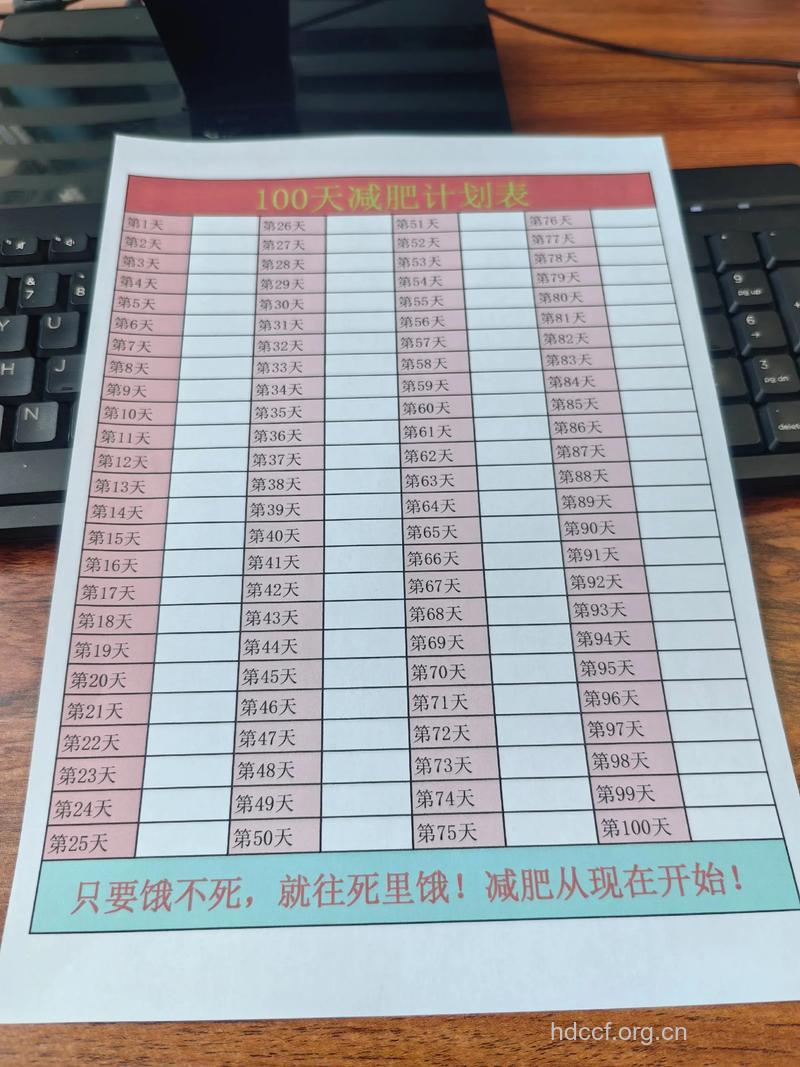 100天减肥计划表
第1天 第26天 第51天 第76天
第2天 第27天 第52天 第77天
第3天 第28天 第53天 第78天
第4天 第29天 第54天 第79天
第5天 第30天 第55天 第80天
第6天 第31天 第56天 第81天
第7天 第32天 第57天 第82天
第8天 第33天 第58天 第83天
第9天 第34天 第59天 第84天
第10天 第35天 第60天 第85天
第11天 第36天 第61天 第86天
第12天 第37天 第62天 第87天
第13天 第38天 第63天 第88天
第14天 第39天 第64天 第89天
第15天 第40天 第65天 第90天
第16天 第41天 第66天 第91天
第17天 第42天 第67天 第92天
第18天 第43天 第68天 第93天
第19天 第44天 第69天 第94天
第20天 第45天 第70天 第95天
第21天 第46天 第71天 第96天
第22天 第47天 第72天 第97天
第23天 第48天 第73天 第98天
第24天 第49天 第74天 第99天
第25天 第50天 第75天 第100天
只要饿不死，就往死里饿！减肥从现在开始！
& 7 8
Y U
H J
N
9 pg up
6
3 pg dn
delete
hdccf.org.cn